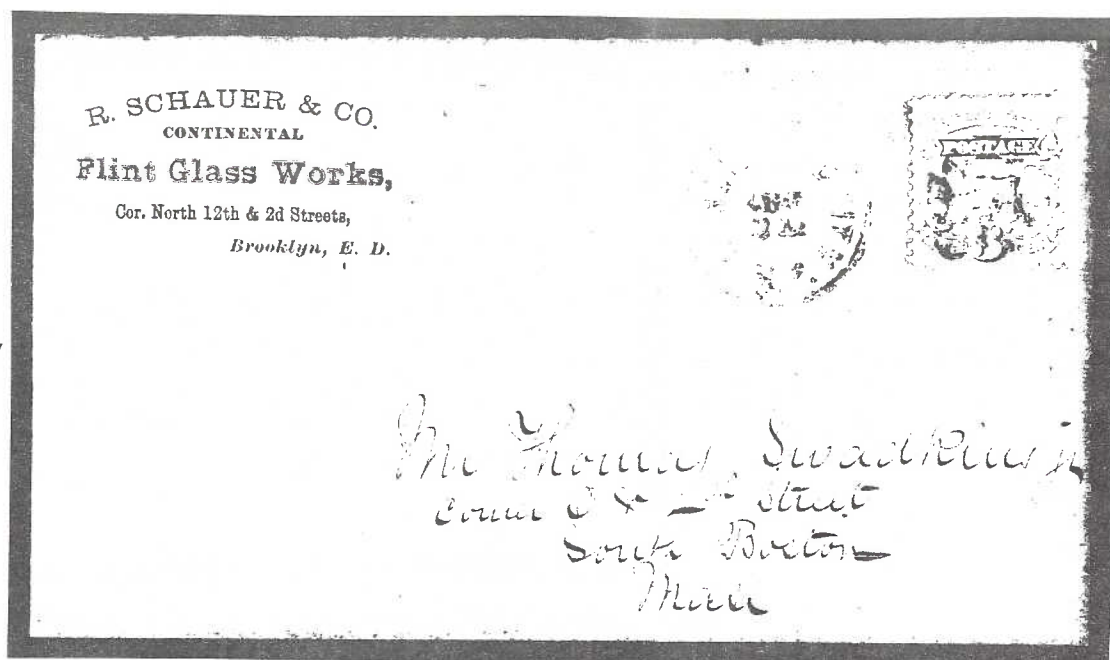 R. SCHAUER & CO.
CONTINENTAL
Flint Glass Works,
Cor. North 12th & 2d Streets,
Brooklyn, E. D.
POSTAGE
Mr Thomas Swadkins jr
Corner & Street
South Boston
Mass